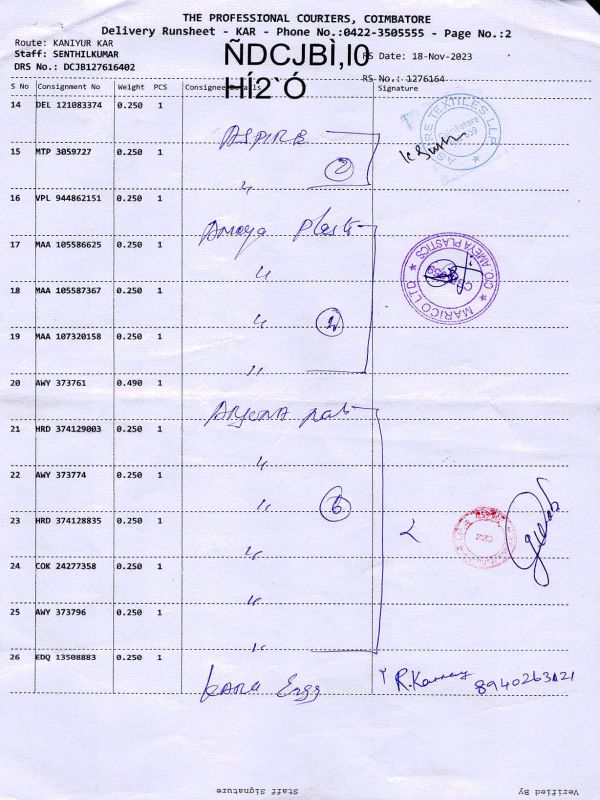 THE PROFESSIONAL COURIERS, COIMBATORE
Delivery Runsheet - KAR - Phone No.:0422-3505555 - Page No.:2
Route: KANIYUR KAR
Staff: SENTHILKUMAR
DRS No.: DCJB127616402
ÑDCJBÌ,I0
HÍ2`Ó
RS Date: 18-Nov-2023
RS No.: 1276164
S No Consignment No Weight PCS Consignee Details Signature
14 DEL 121083374 0.250 1
ASPIRE
ASPIRE TEXTILES LLP
15 MTP 3059727 0.250 1
〃 2
16 VPL 944862151 0.250 1
Ameya Plasti
17 MAA 105586625 0.250 1
〃
MARICO LTD C/O. AMEYA PLASTICS
18 MAA 105587367 0.250 1
〃
19 MAA 107320158 0.250 1
〃
20 AWY 373761 0.490 1
21 HRD 374129003 0.250 1
〃
22 AWY 373774 0.250 1
〃 6
23 HRD 374128835 0.250 1
〃
24 COK 24277358 0.250 1
〃
25 AWY 373796 0.250 1
〃
26 EDQ 13508883 0.250 1
Engg
Staff Signature
Verified By